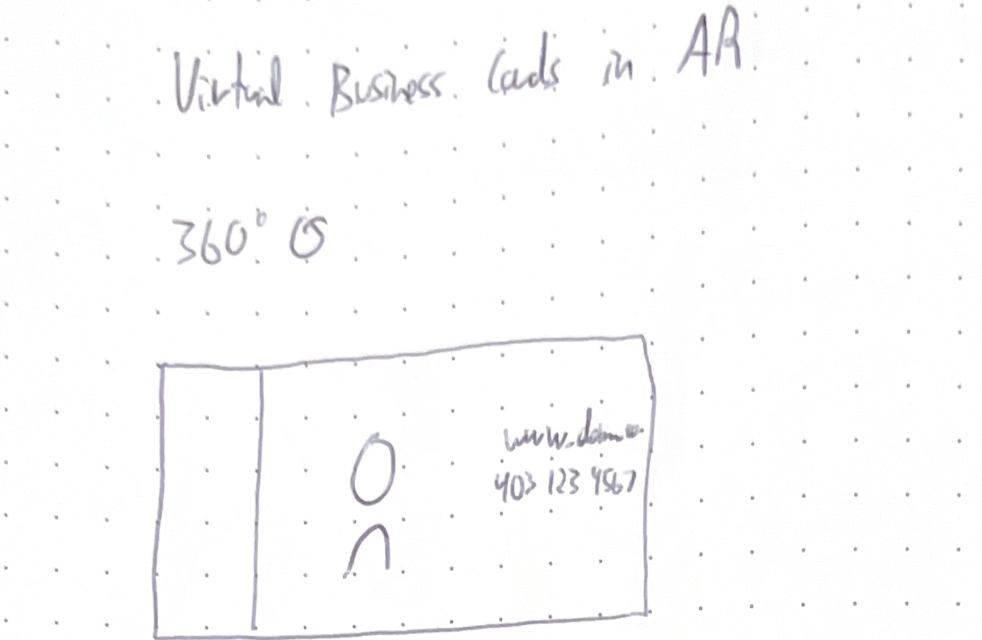 Virtual Business Cards in AR
360°
403 123 4567